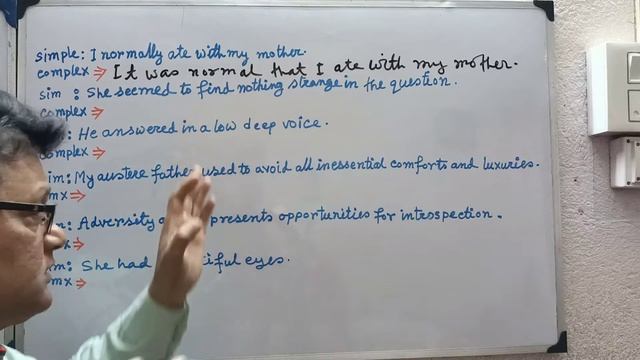 simple: I normally ate with my mother.
complex ⇒ It was normal that I ate with my mother.
sim : She seemed to find nothing strange in the question.
complex ⇒
: He answered in a low deep voice.
complex ⇒
im: My austere father used to avoid all inessential comforts and luxuries.
mx ⇒
: Adversity presents opportunities for introspection.
x ⇒
m: She had tiful eyes.
omx ⇒